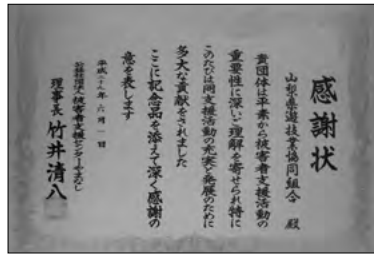 感謝状
山梨県遊技業協同組合 殿
貴団体は平素から被害者支援活動の
重要性に深いご理解を寄せられ特に
このたびは同支援活動の充実と発展のために
多大な貢献をされました
ここに記念品を添えて深く感謝の
意を表します
平成二十八年 六月一日
公益社団法人被害者支援センターやまなし
理事長 竹井清八